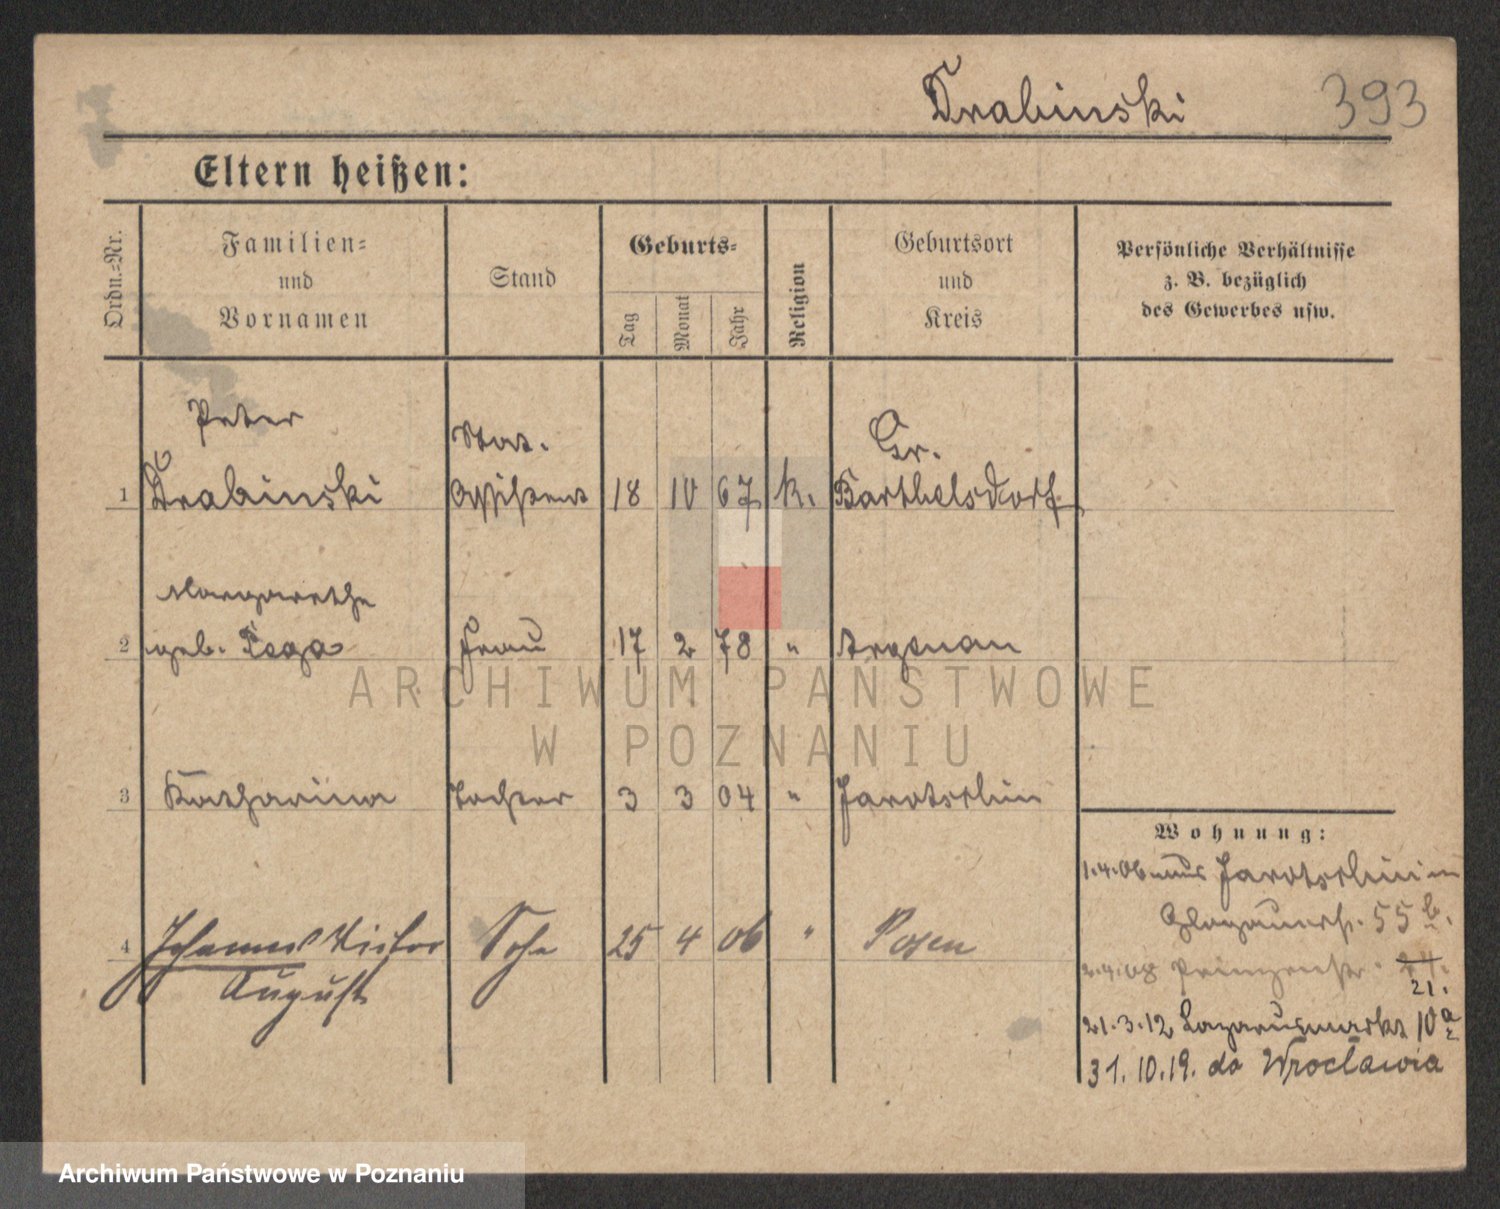 Drabinski 393
Eltern heißen:
Ordn.-Nr.
Familien-
und
Vornamen
Stand
Geburts-
Tag
Monat
Jahr
Religion
Geburtsort
und
Kreis
Persönliche Verhältnisse
z. B. bezüglich
des Gewerbes usw.
Peter Stat. Gr.
1 Drabinski Assistent 18 10 67 k. Barthelsdorf
Margarethe
2 geb. Frau 17 2 78 " Argenau
3 Katharina Tochter 3 3 04 " Jarotschin
Wohnung:
1.4.06 aus Jarotschin in
Glogauerstr. 55 b.
4 Johannes Victor Sohn 25 4 06 " Posen
August
2.4.08 Prinzenstr. 24.
21.
21.3.12 Lazarusmarkt 10a
31.10.19. do Wrocławia
ARCHIWUM PAŃSTWOWE
W POZNANIU
Archiwum Państwowe w Poznaniu